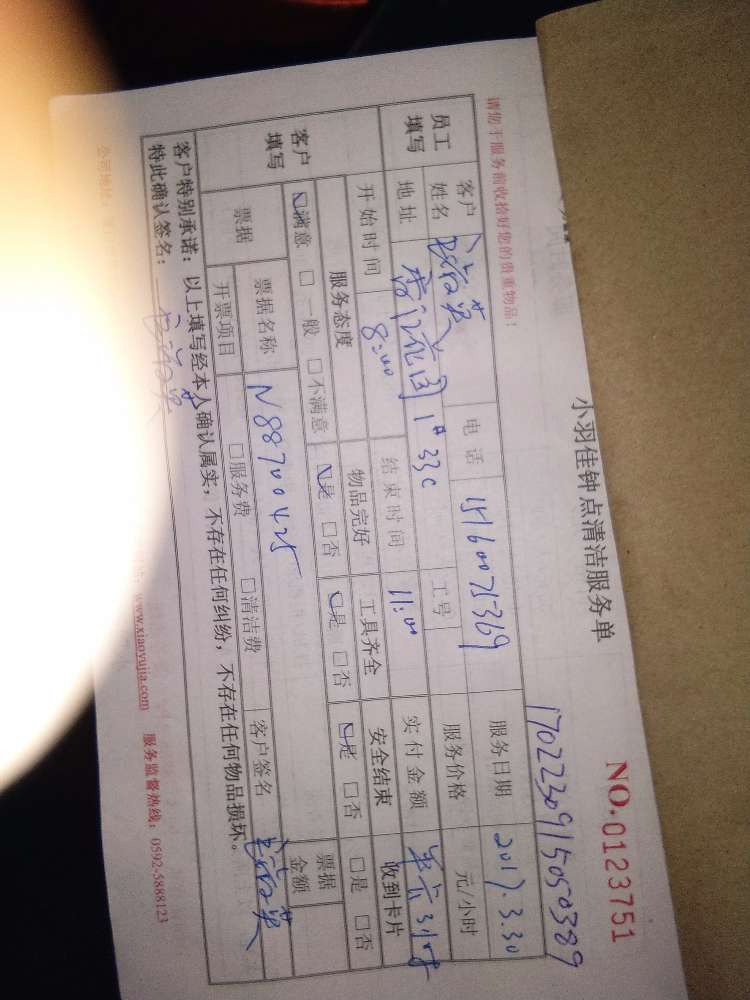 小羽佳钟点清洁服务单
NO.0123751
17022309115050389
请您于服务前收拾好您的贵重物品！
员工填写 客户姓名 电话 15160075369 服务日期 2017.3.30
地址 1#33c 工号 服务价格 元/小时
开始时间 8:00 结束时间 11:00 实付金额 3小时
客户填写 服务态度 物品完好 工具齐全 安全结束 收到卡片
☑满意 □一般 □不满意 ☑是 □否 ☑是 □否 ☑是 □否 □是 □否
票据 票据名称 N88700425 票据金额
开票项目 □服务费 □清洁费 客户签名
客户特别承诺：以上填写经本人确认属实，不存在任何纠纷，不存在任何物品损坏。
特此确认签名：
公司地址：
www.xiaoyujia.com 服务监督热线：0592-5888123